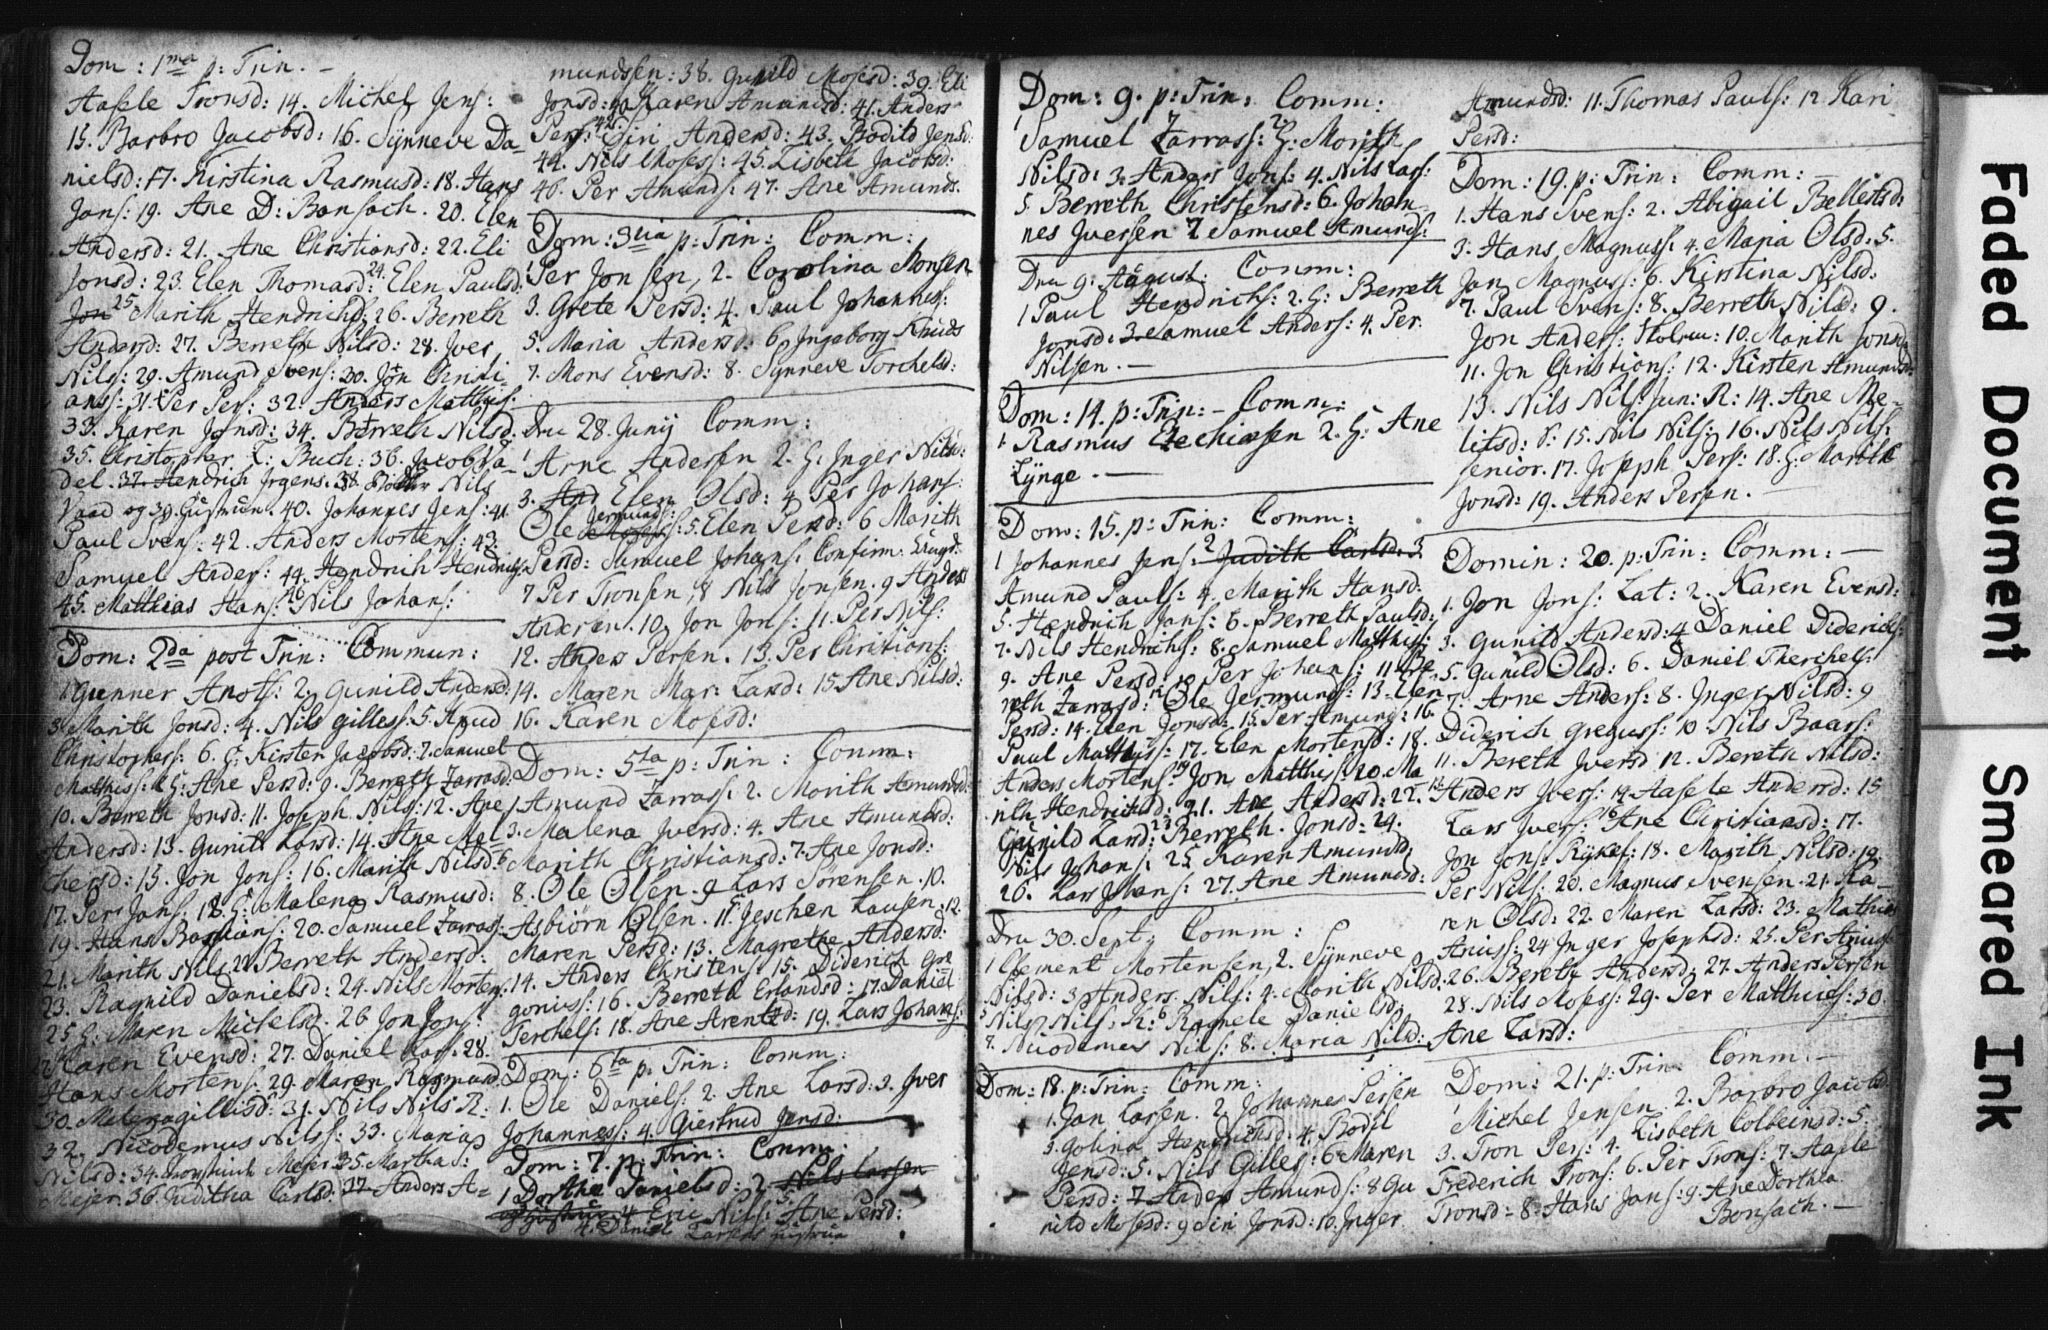 Dom: 1ma p: Trin. -
Aasele Tronsd: 14. Michel Jens:
15. Barbro Jacobsd: 16. Synneve Da-
nielsd: 17. Kirstina Rasmusd: 18. Hans
Jans: 19. Ane D: Bonsach. 20. Elen
Andersd: 21. Ane Christiansd: 22. Eli
Jonsd: 23. Elen Thomasd: 24. Elen Paulsd:
Jon 25 Marith Hendrichsd: 26. Berreth
Andersd: 27. Berreth Nilsd: 28. Iver
Nils: 29. Amund Svens: 30. Jon Christi-
ans: 31. Per Pers: 32. Anders Matthis:
33. Karen Jonsd: 34. Berreth Nilsd.
35. Christopher T: Buch: 36. Jacob
del. 37. Hendrich Jrgens. 38. Nils
Vaad og 39. Hustrue. 40. Johannes Jens: 41
Paul Svens: 42. Anders Mortens: 43.
Samuel Anders: 44. Hendrich Hendrichs:
45. Matthias Hans: 46 Nils Johans:
Dom: 2da post Trin: Commun:
1. Gunner Anots: 2. Gunild Andersd:
3. Marith Jonsd: 4. Nils Gilless: 5. Knud
Christophers: 6. H: Kirsten Jacobsd: 7. Samuel
Matthiss: 8 H: Ane Persd: 9. Berreth Zarrasd:
10. Berreth Jonsd: 11. Joseph Nils: 12. Ane
Andersd: 13. Gunild Larsd: 14. Ane Mel-
chersd: 15. Jon Jons: 16. Marith Nilsd:
17. Per Jans: 18. H: Malena Rasmusd:
19. Hans Bastians: 20. Samuel Zarras:
21. Marith Nils: 22 Berreth Andersd:
23. Ragnild Danielsd: 24. Nils Morten:
25 H: Maren Michelsd. 26 Jon Jons:
Karen Evensd: 27. Daniel Lars: 28.
Hans Mortens: 29. Maren Rasmusd.
30. Metenagillisd: 31. Nils Nils R:
32. Nicodemus Nilss: 33. Maria
Nilsd: 34. Meier 35. Martha
Meier. 36. Juditha Carlsd: 37 Anders A=
mundsen: 38. Gunild Mosesd: 39. Eli
Jonsd: 40. Karen Amundsd: 41. Anders
Pers: 42. Siri Andersd: 43. Bodild Jensd:
44. Nils Moses: 45. Lisbeth Jacobsd:
46. Per Amunds: 47. Ane Amunds.
Dom: 3tia p: Trin: Comm:
1 Per Jonsen, 2. Carolina Monsen
3. Grete Persd: 4. Paul Johannes:
5. Maria Andersd: 6. Ingeborg Knuds
7. Mons Evensd: 8. Synneve Torchelsd:
Dru 28. Junij Comm:
1 Arne Andersen 2. H: Inger Nilsd:
3. And Elen Olsd: 4. Per Johans:
Ole Jermunds: 5. Elen Persd: 6 Marith
Persd: Samuel Johans: Confirm:
7 Per Tronsen, 8 Nils Jonsen. 9 Anders
Andersen. 10. Jon Jons: 11. Per Nils:
12. Anders Persen. 13. Per Christians:
14. Maren Mar: Larsd: 15. Ane Nilsd:
16. Karen Mosesd:
Dom: 5ta p: Trin: Comm:
1. Amund Zarrass: 2. Morith Amundsd:
3. Malena Iversd: 4. Ane Amundsd:
6 Marith Christiansd: 7. Ane Jonsd:
8. Ole Olsen. 9 Lars Sørensen. 10.
Asbiörn Olsen. 11. Jeschen Lausen. 12.
Maren Persd: 13. Magrethe Andersd:
14. Anders Christens: 15. Diderich Gre
goriss: 16. Berreth Erlandsd: 17. Daniel
Terchels: 18. Ane Arentsd: 19. Lars Johans:
Dom: 6ta p: Trin: Comm:
1. Ole Daniels: 2. Ane Larsd: 3. Iver
Johanness: 4. Giertrud Jensd:
Dom: 7. p: Trin: Comm:
1 Dorthe Danielsd: 2. Nils Larsen
og Hustrue 4. Eric Nils: 5. Ane Persd:
4. Daniel Larsens Hustrue
Dom: 9. p: Trin: Comm:
1 Samuel Zarrass: 2. H: Morith
Nilsd: 3. Anders Jons: 4. Nils Lars:
5. Berreth Christensd: 6. Johan-
nes Iversen 7. Samuel Amunds:
Dru 9. August: Comm:
1 Paul Hendrichs: 2. H: Berreth
Jonsd: 3. Samuel Anders: 4. Per.
Nilsen. -
Dom: 14. p: Trin: - Comm:
1. Rasmus Zechiasen 2. H: Ane
Lynge. -
Dom: 15. p: Trin: Comm:
1 Johannes Jens: 2 Judith Carlsd: 3.
Amund Pauls: 4. Marith Hansd:
5. Hendrich Jans: 6. Berreth Paulsd:
7. Nils Hendrichs: 8. Samuel Matthiss:
9. Ane Persd: 10. Per Johans: 11 Be
reth Zarrasd: 12 Ole Jermunds: 13. Elen
Persd: 14. Elen Jonsd: 15. Per Amunds: 16.
Paul Matthiss: 17. Elen Mortensd: 18.
Anders Mortens: 19 Jon Matthiss: 20. Ma
rith Hendrichsd: 21. Ane Andersd: 22.
Gunild Larsd: 23 Berreth. Jonsd: 24.
Nils Johans: 25 Karen Amundsd:
26. Lars Johans: 27. Ane Amundsd:
Dru 30. Sept: Comm:
1 Clement Mortensen, 2. Synneve
Nilsd: 3 Anders. Nils: 4. Morith Nilsd:
5 Nils Nils: R: 6. Ragnele Danielsd:
7. Nicodemus Nils: 8. Maria Nilsd:
Dom: 18. p: Trin: Comm:
1. Jan Larsen. 2. Johannes Persen
3. Golina Hendrichsd: 4. Bodil
Jensd: 5. Nils Gilles: 6 Maren
Persd: 7 Anders Amunds: 8 Gu
nild Mosesd: 9 Siri Jonsd: 10. Inger
Amundsd: 11. Thomas Pauls: 12 Kari
Persd:
Dom: 19. p: Trin: Comm: -
1. Hans Svens: 2. Abigail Bellesd:
3. Hans Magnuss: 4. Maria Olsd: 5.
Jan Magnuss: 6. Kirstina Nilsd:
7. Paul Svens: 8. Berreth Nilsd: 9.
Jon Anders: Holm: 10. Marith Jonsd:
11. Jon Christians: 12. Kirsten Amundsd:
13. Nils Nils: Jun: R: 14. Ane Me-
litsd: S: 15. Nils Nils: 16. Nils Nils:
senior. 17. Joseph Pers: 18. H: Marith
Jonsd: 19. Anders Persen. -
Domin: 20. p: Trin: Comm: -
1. Jon Jons: Lat: 2. Karen Evensd:
3. Gunild Andersd: 4 Daniel Diderichs:
5. Gunild Olsd: 6. Daniel Therchels:
7. Arne Anders: 8. Inger Nilsd: 9
Diderich Greguss: 10 Nils Baars:
11. Bereth Iversd 12. Bereth Nilsd:
13 Anders Ivers: 14 Aasele Andersd: 15
Lars Ivers: 16 Ane Christiansd: 17.
Jon Jons: Rykes: 18. Marith Nilsd: 19.
Per Nils: 20. Magnus Svensen. 21. Ka-
ren Olsd: 22. Maren Larsd: 23. Mathias
Ariuss: 24 Inger Josephsd: 25. Per Ariuss
26. Bereth Andersd: 27. Anders Persen
28. Nils Moses: 29. Per Matthies: 30
Ane Larsd:
Dom: 21. p: Trin: Comm: -
1 Michel Jensen 2. Barbro Jacobsd:
3. Tron Pers: 4. Lisbeth Colbeinsd: 5.
Frederich Trons: 6. Per Trons: 7. Aasele
Tronsd - 8. Hans Jans: 9. Ane Dorthea
Bonsach. -
Faded Document
Smeared Ink